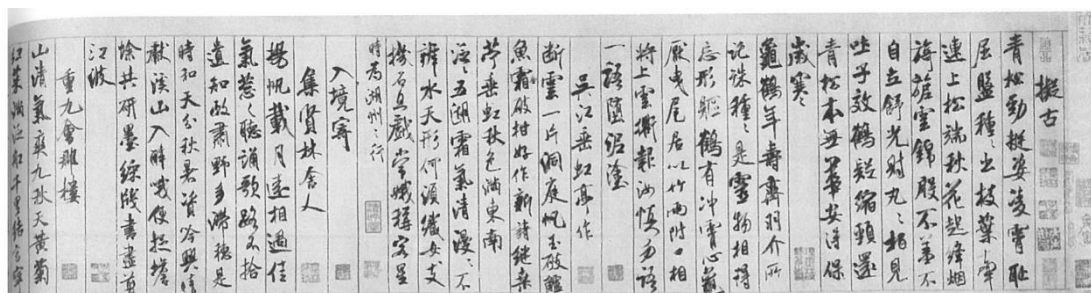 擬古
青松勁挺姿凌霄恥
屈盤種〻出枝葉牽
連上松端秋花起絳烟
旖旎雲錦殷不羞不
自立舒光射丸〻柏見
吐子效鶴疑縮頸還
青松本無華安得保
歲寒〻
龜鶴年壽齊羽介所
託殊種〻是靈物相得
忘形軀鶴有冲霄心龜
厭曳尾居以竹兩附口相
將上雲衢報汝慎勿語
一語墮泥塗
吳江垂虹亭作
斷雲一片洞庭帆玉破鱸
魚霜破柑好作新詩繼桑
苧垂虹秋色滿東南
泛〻五湖霜氣清漫〻不
辨水天形何須織女支
機石且戲常娥稱客星
時為湖州之行
入境寄
集賢林舍人
揚帆載月遠相過佳
氣蔥〻聽誦歌路不拾
遺知政肅野多滯穗是
時和天分秋暑資吟興晴
獻溪山入醉哦便捉蟾
蜍共研墨綵牋書盡剪
江波
重九會郡樓
山清氣爽九秋天黃菊
紅茱滿泛船千里結言寧